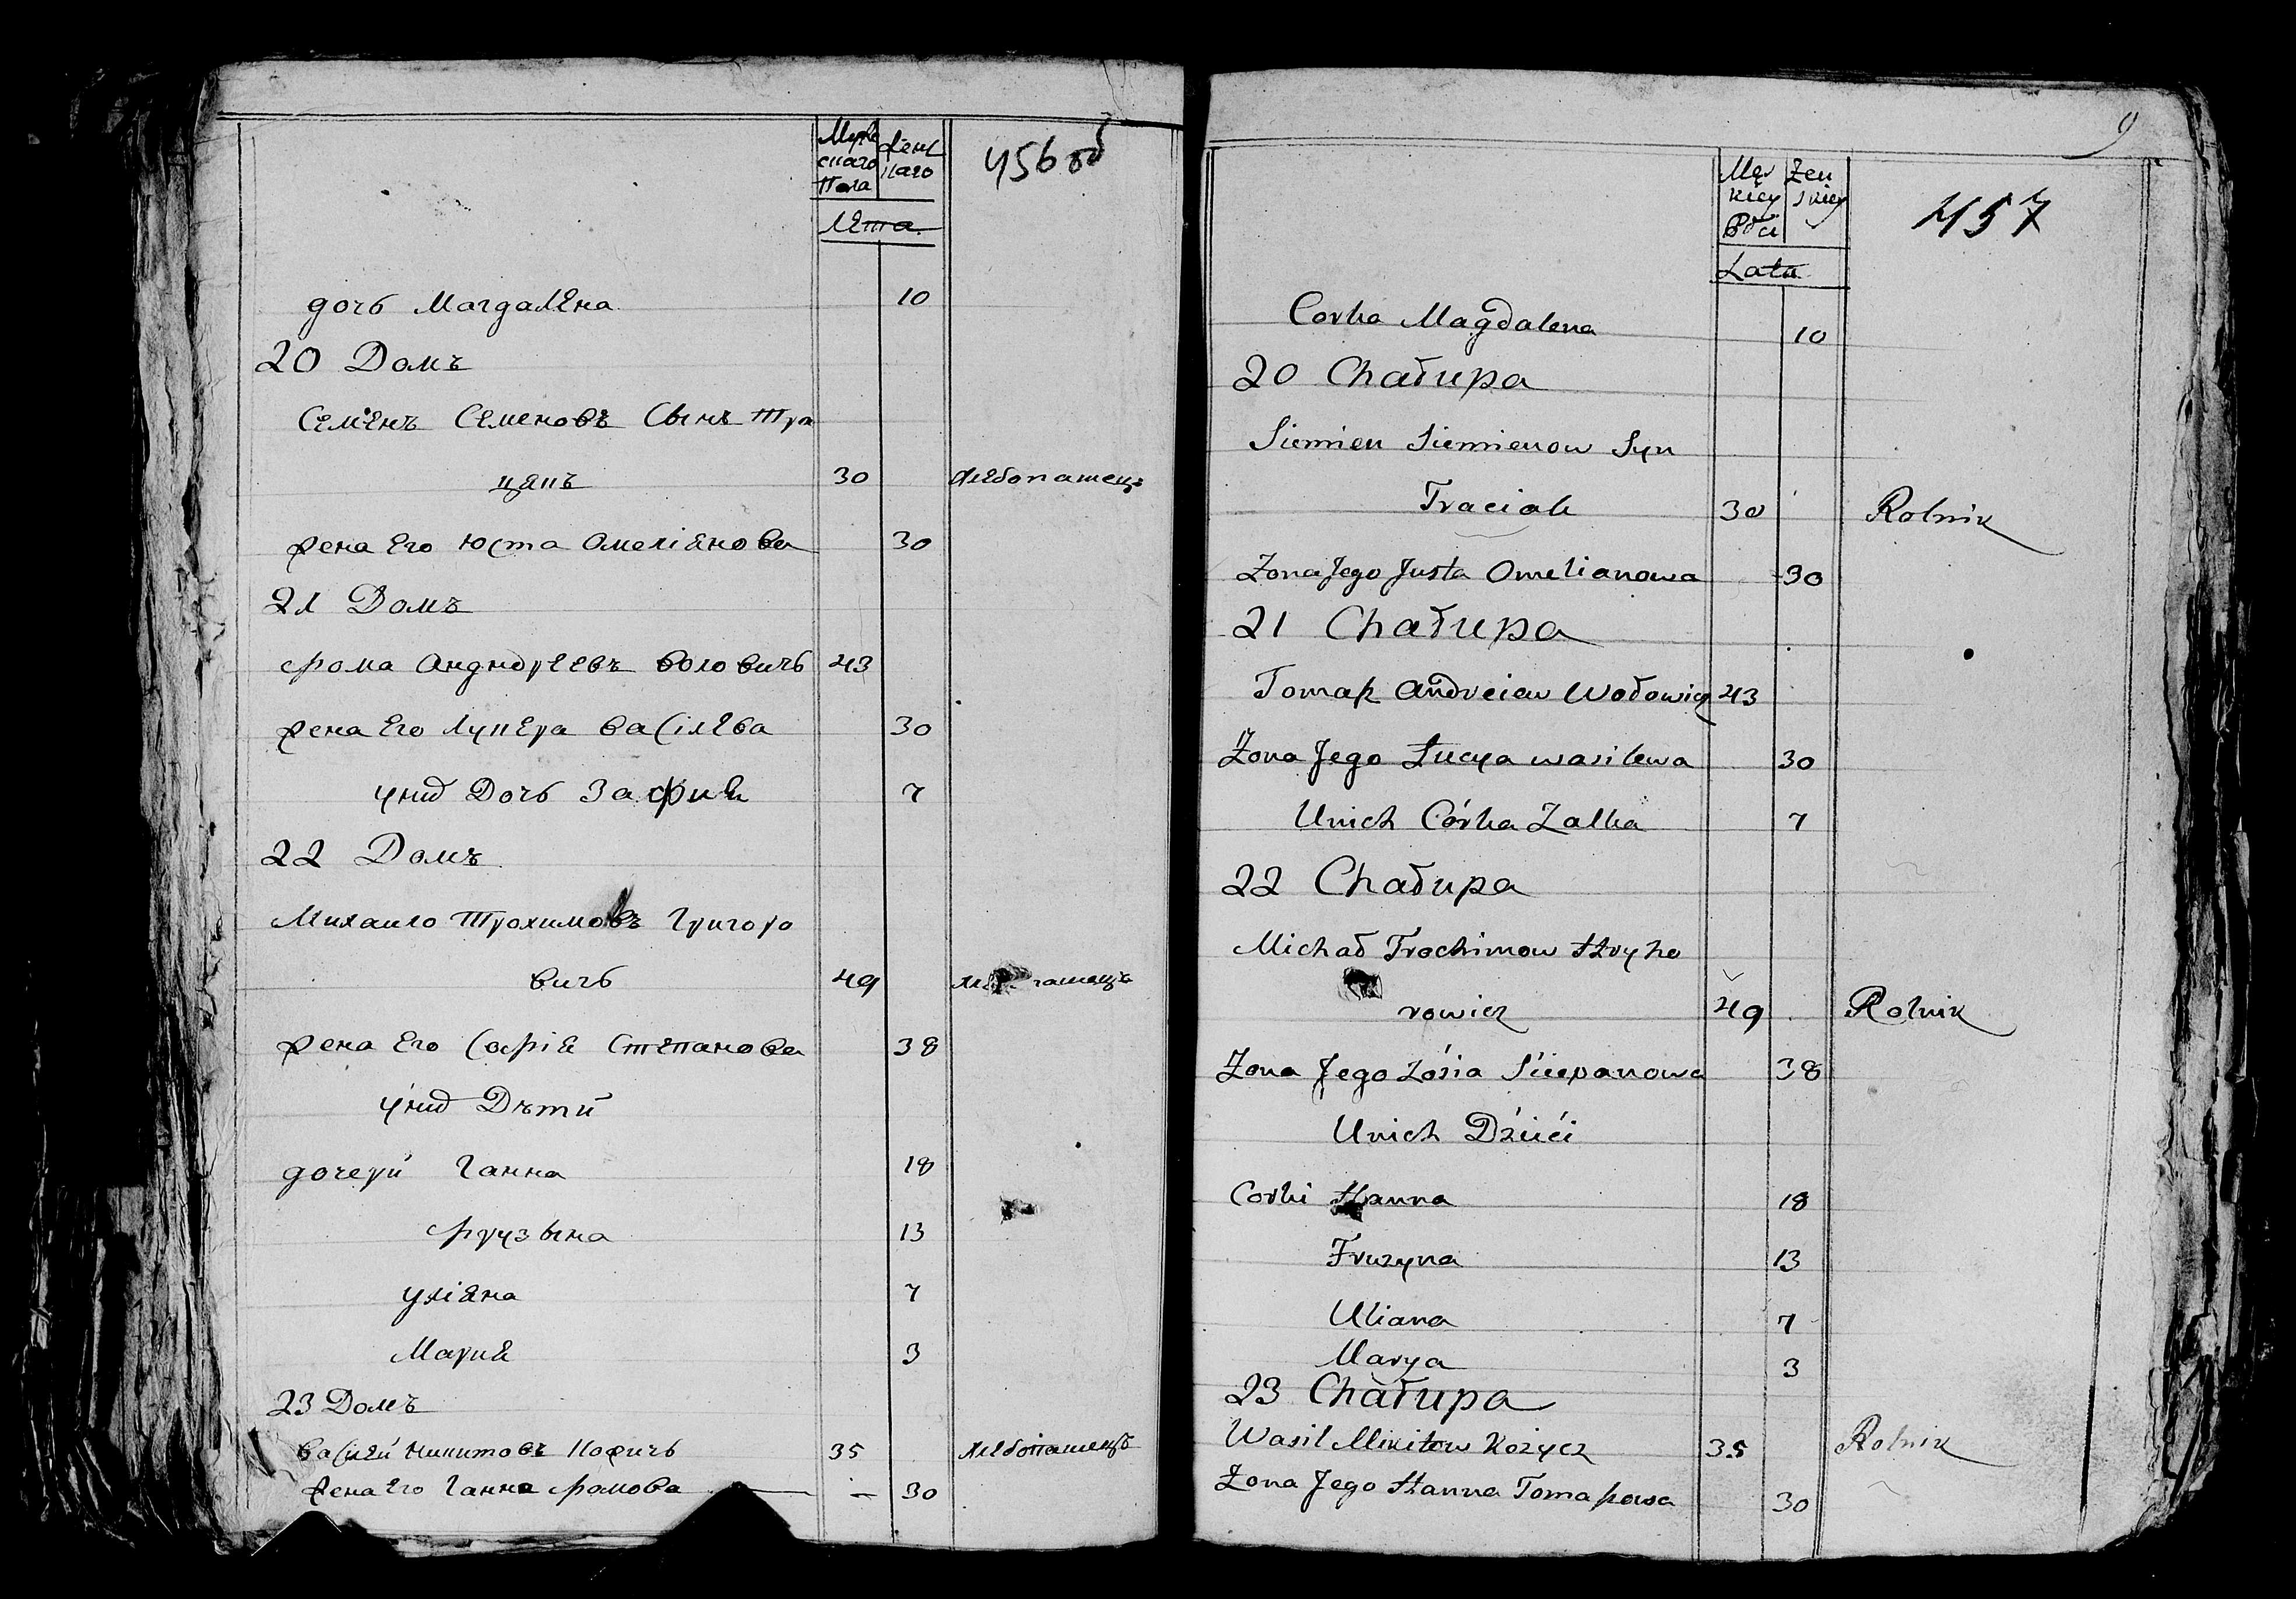 Муже
скаго
Пола
Женс
каго
456 об
Лѣта
дочь Магдалѣна 10
20 Домъ
Семѣнъ Семеновъ Сынъ Тра
цякъ 30 Хлебопашецъ
жена Его Юста Омеліянова 30
21 Домъ
Фома Андндреевъ Воловичь 43
жена Его Луцѣя Василѣва 30
уних Дочь Зафия 7
22 Домъ
Михаило Трохимовъ Григоро
вичь 49
жена Его Софія Степанова 38
уних Дѣти
дочери Ганна 18
Фрузына 13
уліяна 7
Мария 3
23 Домъ
Василѣй Никитовъ Кожичь 35 Хлебопашецъ
жена Его Ганна Фомова — 30
9
Męs
kiey
Płci
Żeń
skiey
457
Lata
Corka Magdalena 10
20 Chałupa
Siemien Siemienow Syn
Traciak 30 Rolnik
Żona Jego Justa Omelianowa 30
21 Chałupa
Tomaſz Andreiew Wołowicz 43
Żona Jego Łucya wasilewa 30
Unich Córka Zalka 7
22 Chałupa
Michał Trochimow Hryho
rowicz 49 Rolnik
Żona Jego Zósia Śćiepanowa 38
Unich Dźiéći
Corki Hanna 18
Fruzyna 13
Uliana 7
Marya 3
23 Chałupa
Wasil Mikitow Kożycz 35 Rolnik
Żona Jego Hanna Tomaſzowa 30